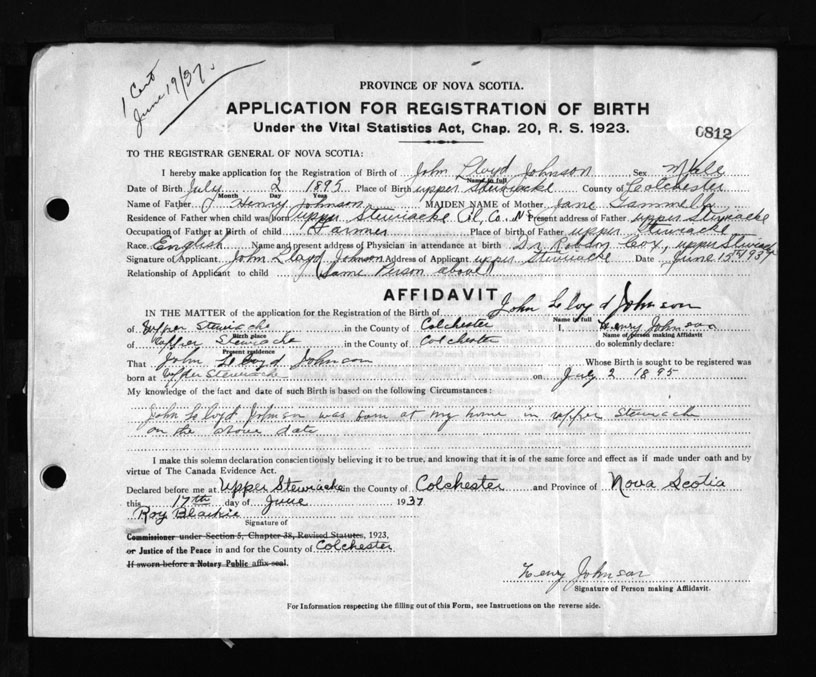 1 Cert
June 19/37.
PROVINCE OF NOVA SCOTIA.
APPLICATION FOR REGISTRATION OF BIRTH
Under the Vital Statistics Act, Chap. 20, R. S. 1923.
0812
TO THE REGISTRAR GENERAL OF NOVA SCOTIA:
I hereby make application for the Registration of Birth of John Lloyd Johnson Sex Male
Name in full
Date of Birth July 2 1895 Place of Birth upper Stewiacke County of Colchester
Month Day Year
Name of Father Henry Johnson MAIDEN NAME of Mother Jane Gammell
Residence of Father when child was born upper Stewiacke Col. Co. N.S. Present address of Father upper Stewiacke
Occupation of Father at Birth of child Farmer Place of birth of Father upper Stewiacke
Race English Name and present address of Physician in attendance at birth Dr. Robson Cox, upper Stewiacke
Signature of Applicant John Lloyd Johnson Address of Applicant upper Stewiacke Date June 15th 1937
Relationship of Applicant to child (Same Person above)
AFFIDAVIT
IN THE MATTER of the application for the Registration of the Birth of John Lloyd Johnson
Name in full
of Upper Stewiacke in the County of Colchester I, Henry Johnson
Birth place Name of person making Affidavit
of Upper Stewiacke in the County of Colchester do solemnly declare:
Present residence
That John Lloyd Johnson Whose Birth is sought to be registered was
born at Upper Stewiacke on July 2 1895
My knowledge of the fact and date of such Birth is based on the following Circumstances:
John Lloyd Johnson was born at my home in upper Stewiack
on the above date
I make this solemn declaration conscientiously believing it to be true, and knowing that it is of the same force and effect as if made under oath and by
virtue of The Canada Evidence Act.
Declared before me at Upper Stewiacke in the County of Colchester and Province of Nova Scotia
this 17th day of June 1937
Roy Blaikie
Signature of
Commissioner under Section 5, Chapter 38, Revised Statutes, 1923,
or Justice of the Peace in and for the County of Colchester
If sworn before a Notary Public affix seal.
Henry Johnson
Signature of Person making Affidavit.
For Information respecting the filling out of this Form, see Instructions on the reverse side.